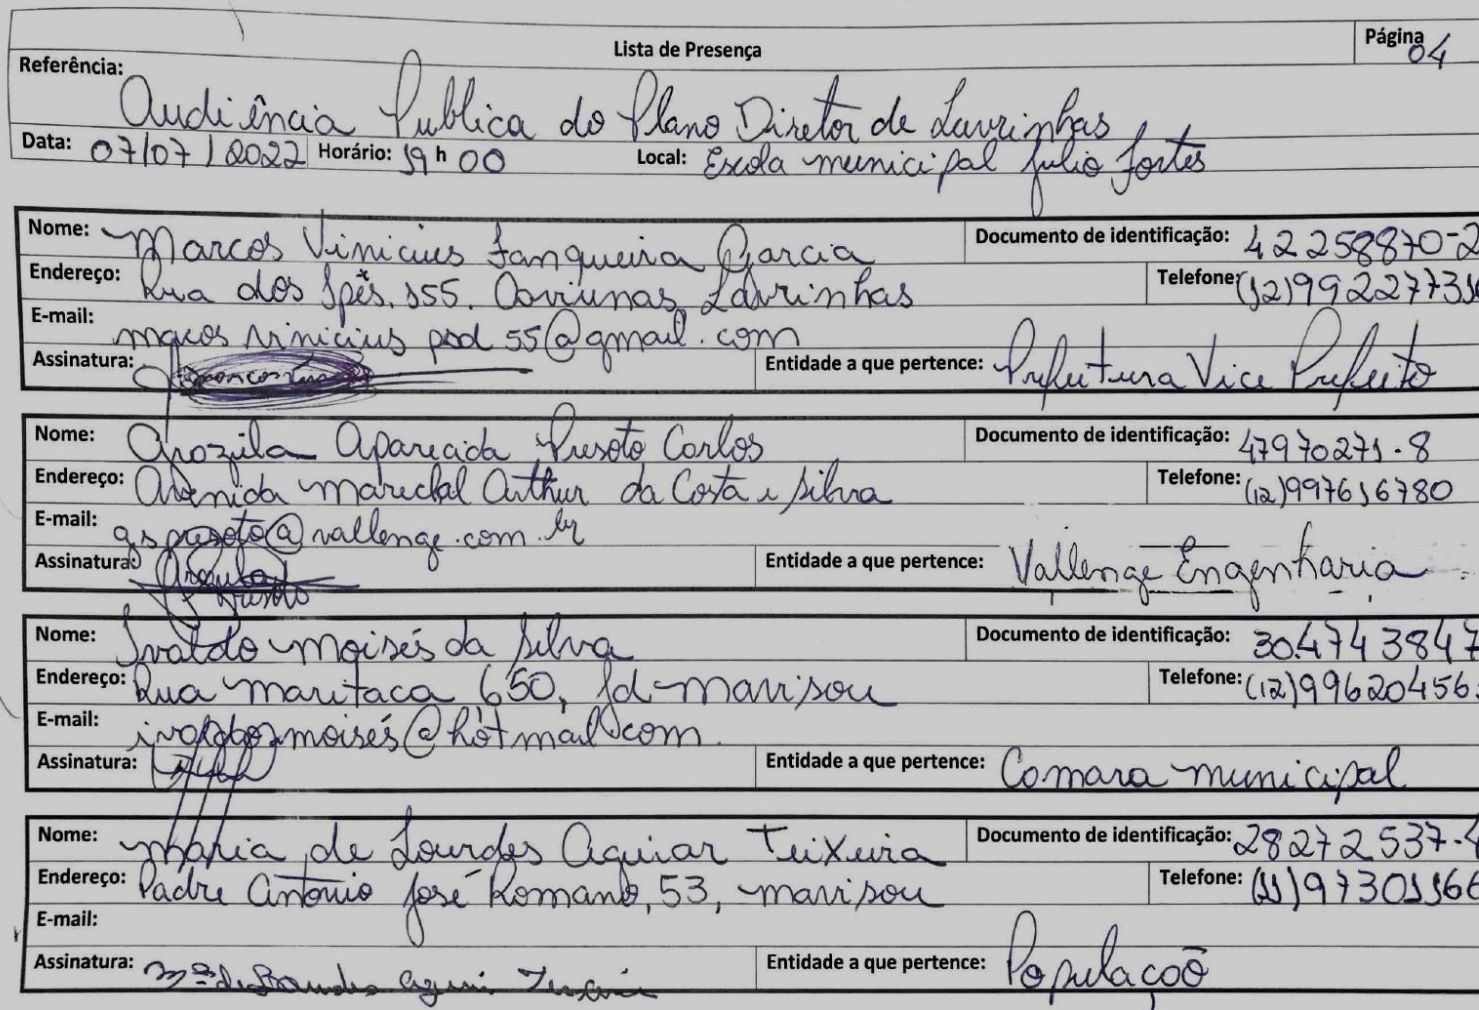 Lista de Presença
Página 04
Referência:
Audiência Publica do Plano Diretor de Lavrinhas
Data: 07/07/2022 Horário: 19 h 00 Local: Escola municipal Julio Fortes
Nome: Marcos Vinicius Janqueira Garcia Documento de identificação: 42258870-2
Endereço: Rua dos Ipês. 155. Lavrinhas Telefone: (12)992277316
E-mail: macos vinicius psd 55@gmail.com
Assinatura: Entidade a que pertence: Prefeitura Vice Prefeito
Nome: Aparecida Presoto Carlos Documento de identificação: 47970271-8
Endereço: Avenida Marechal Arthur da Costa e Silva Telefone: (12)997616780
E-mail: gspresoto@vallenge.com.br
Assinatura: Presoto Entidade a que pertence: Vallenge Engenharia
Nome: Ivaldo moisés da Silva Documento de identificação: 304743847
Endereço: Rua maritaca 650, Jd mavisou Telefone: (12)99620456
E-mail: moisés@hotmail.com
Assinatura: Entidade a que pertence: Comara municipal
Nome: Maria de Lourdes Aguiar Teixeira Documento de identificação: 28272537-4
Endereço: Padre Antonio José Romano, 53, mavisou Telefone: (11)97301166
E-mail:
Assinatura: Mª de Lourdes Aguiar Teixeira Entidade a que pertence: Populaçaõ